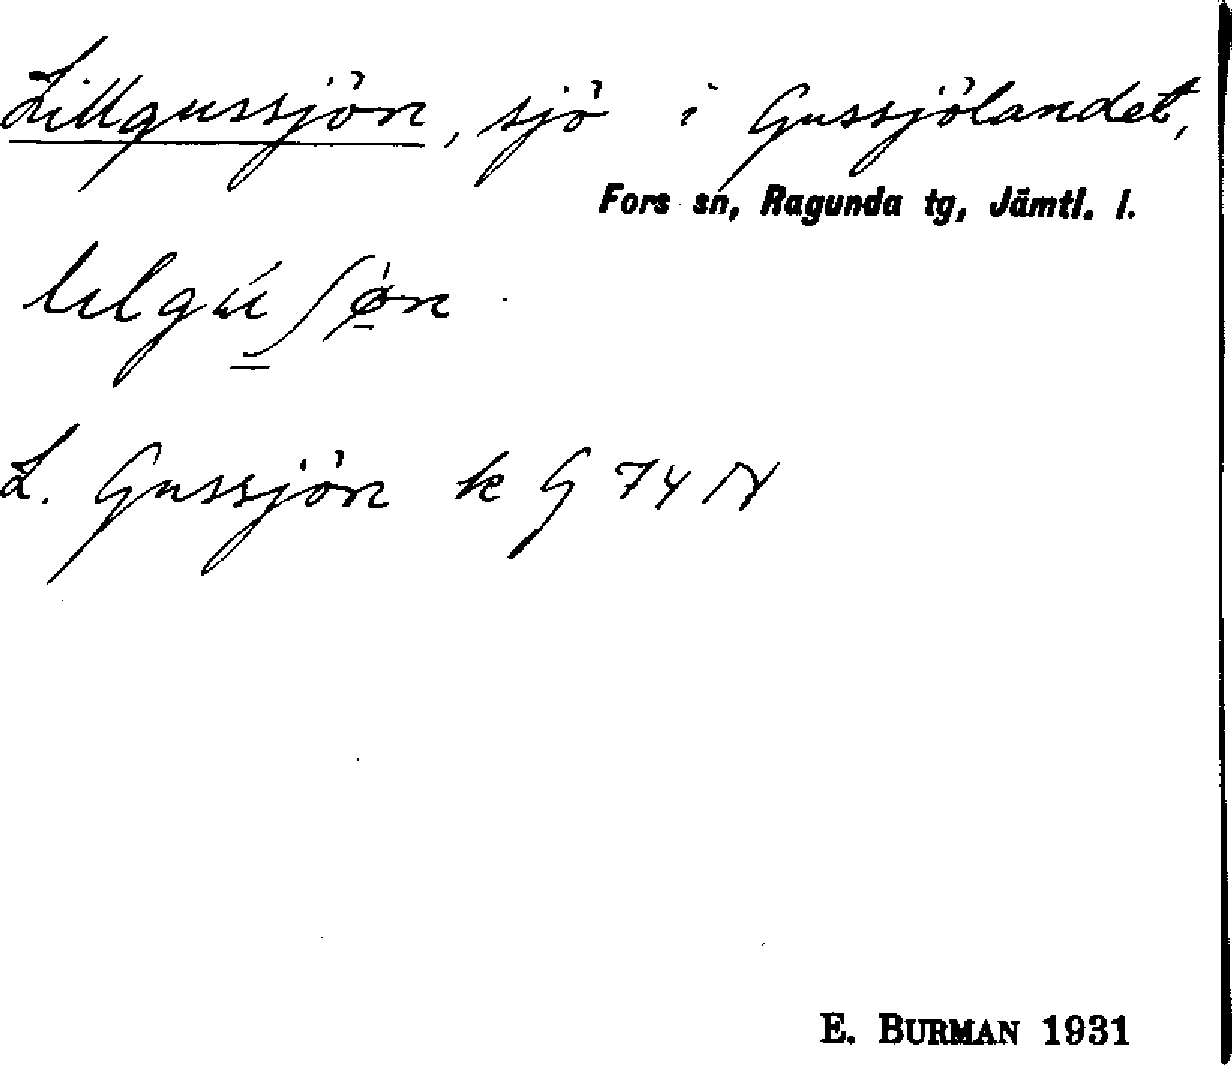 Lillgussjön, sjö i Gussjölandet,
Fors sn, Ragunda tg, Jämtl. l.
L. Gussjön k G 74 N
E. BURMAN 1931